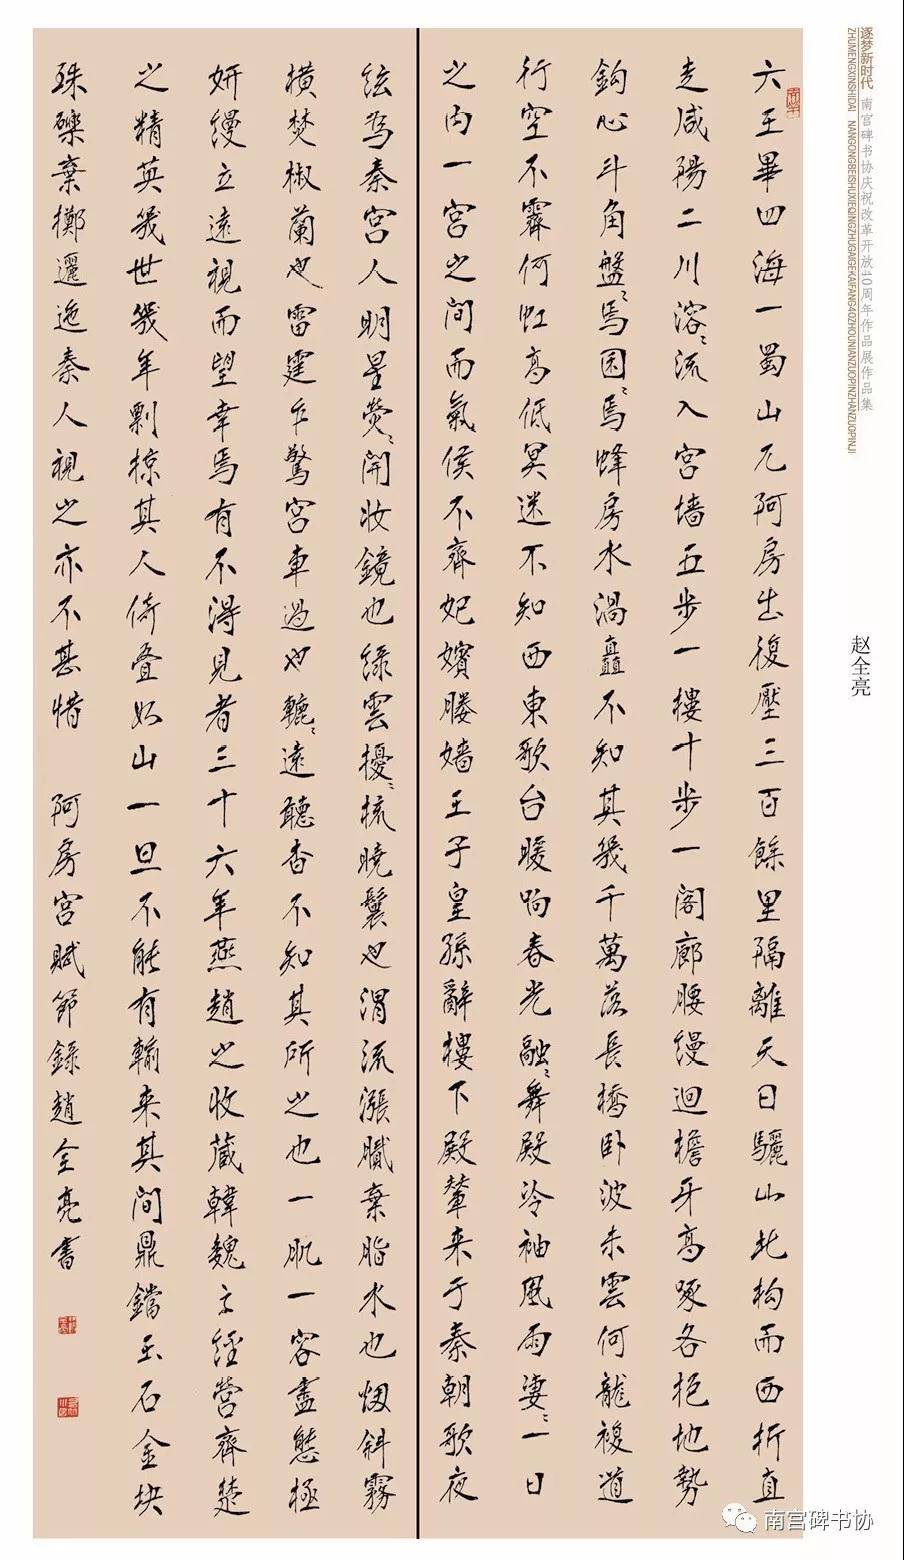 六王畢四海一蜀山兀阿房出復壓三百餘里隔離天日驪山北构而西折直
走咸陽二川溶〻流入宮墙五步一樓十步一閣廊腰縵迴檐牙高啄各抱地勢
鈎心斗角盤〻焉囷〻焉蜂房水渦矗不知其幾千萬落長橋卧波未雲何龍複道
行空不霽何虹高低冥迷不知西東歌台暖响春光融〻舞殿冷袖風雨凄〻一日
之内一宮之間而氣候不齊妃嬪媵嬙王子皇孫辭樓下殿輦来于秦朝歌夜
絃為秦宮人明星熒〻開妝鏡也綠雲擾〻梳曉鬟也渭流漲膩棄脂水也烟斜霧
橫焚椒蘭也雷霆乍驚宮車過也轆〻遠聽杳不知其所之也一肌一容盡態極
妍縵立遠視而望幸焉有不得見者三十六年燕趙之收藏韓魏之經營齊楚
之精英幾世幾年剽掠其人倚疊如山一旦不能有輸来其間鼎鐺玉石金块
珠礫棄擲邐迤秦人視之亦不甚惜 阿房宮賦節錄趙全亮書
逐梦新时代 南宫碑书协庆祝改革开放40周年作品展作品集
ZHUMENGXINSHIDAI NANGONGBEISHUXIEQINGZHUGAIGEKAIFANG40ZHOUNIANZUOPINZHANZUOPINJI
赵全亮
南宫碑书协